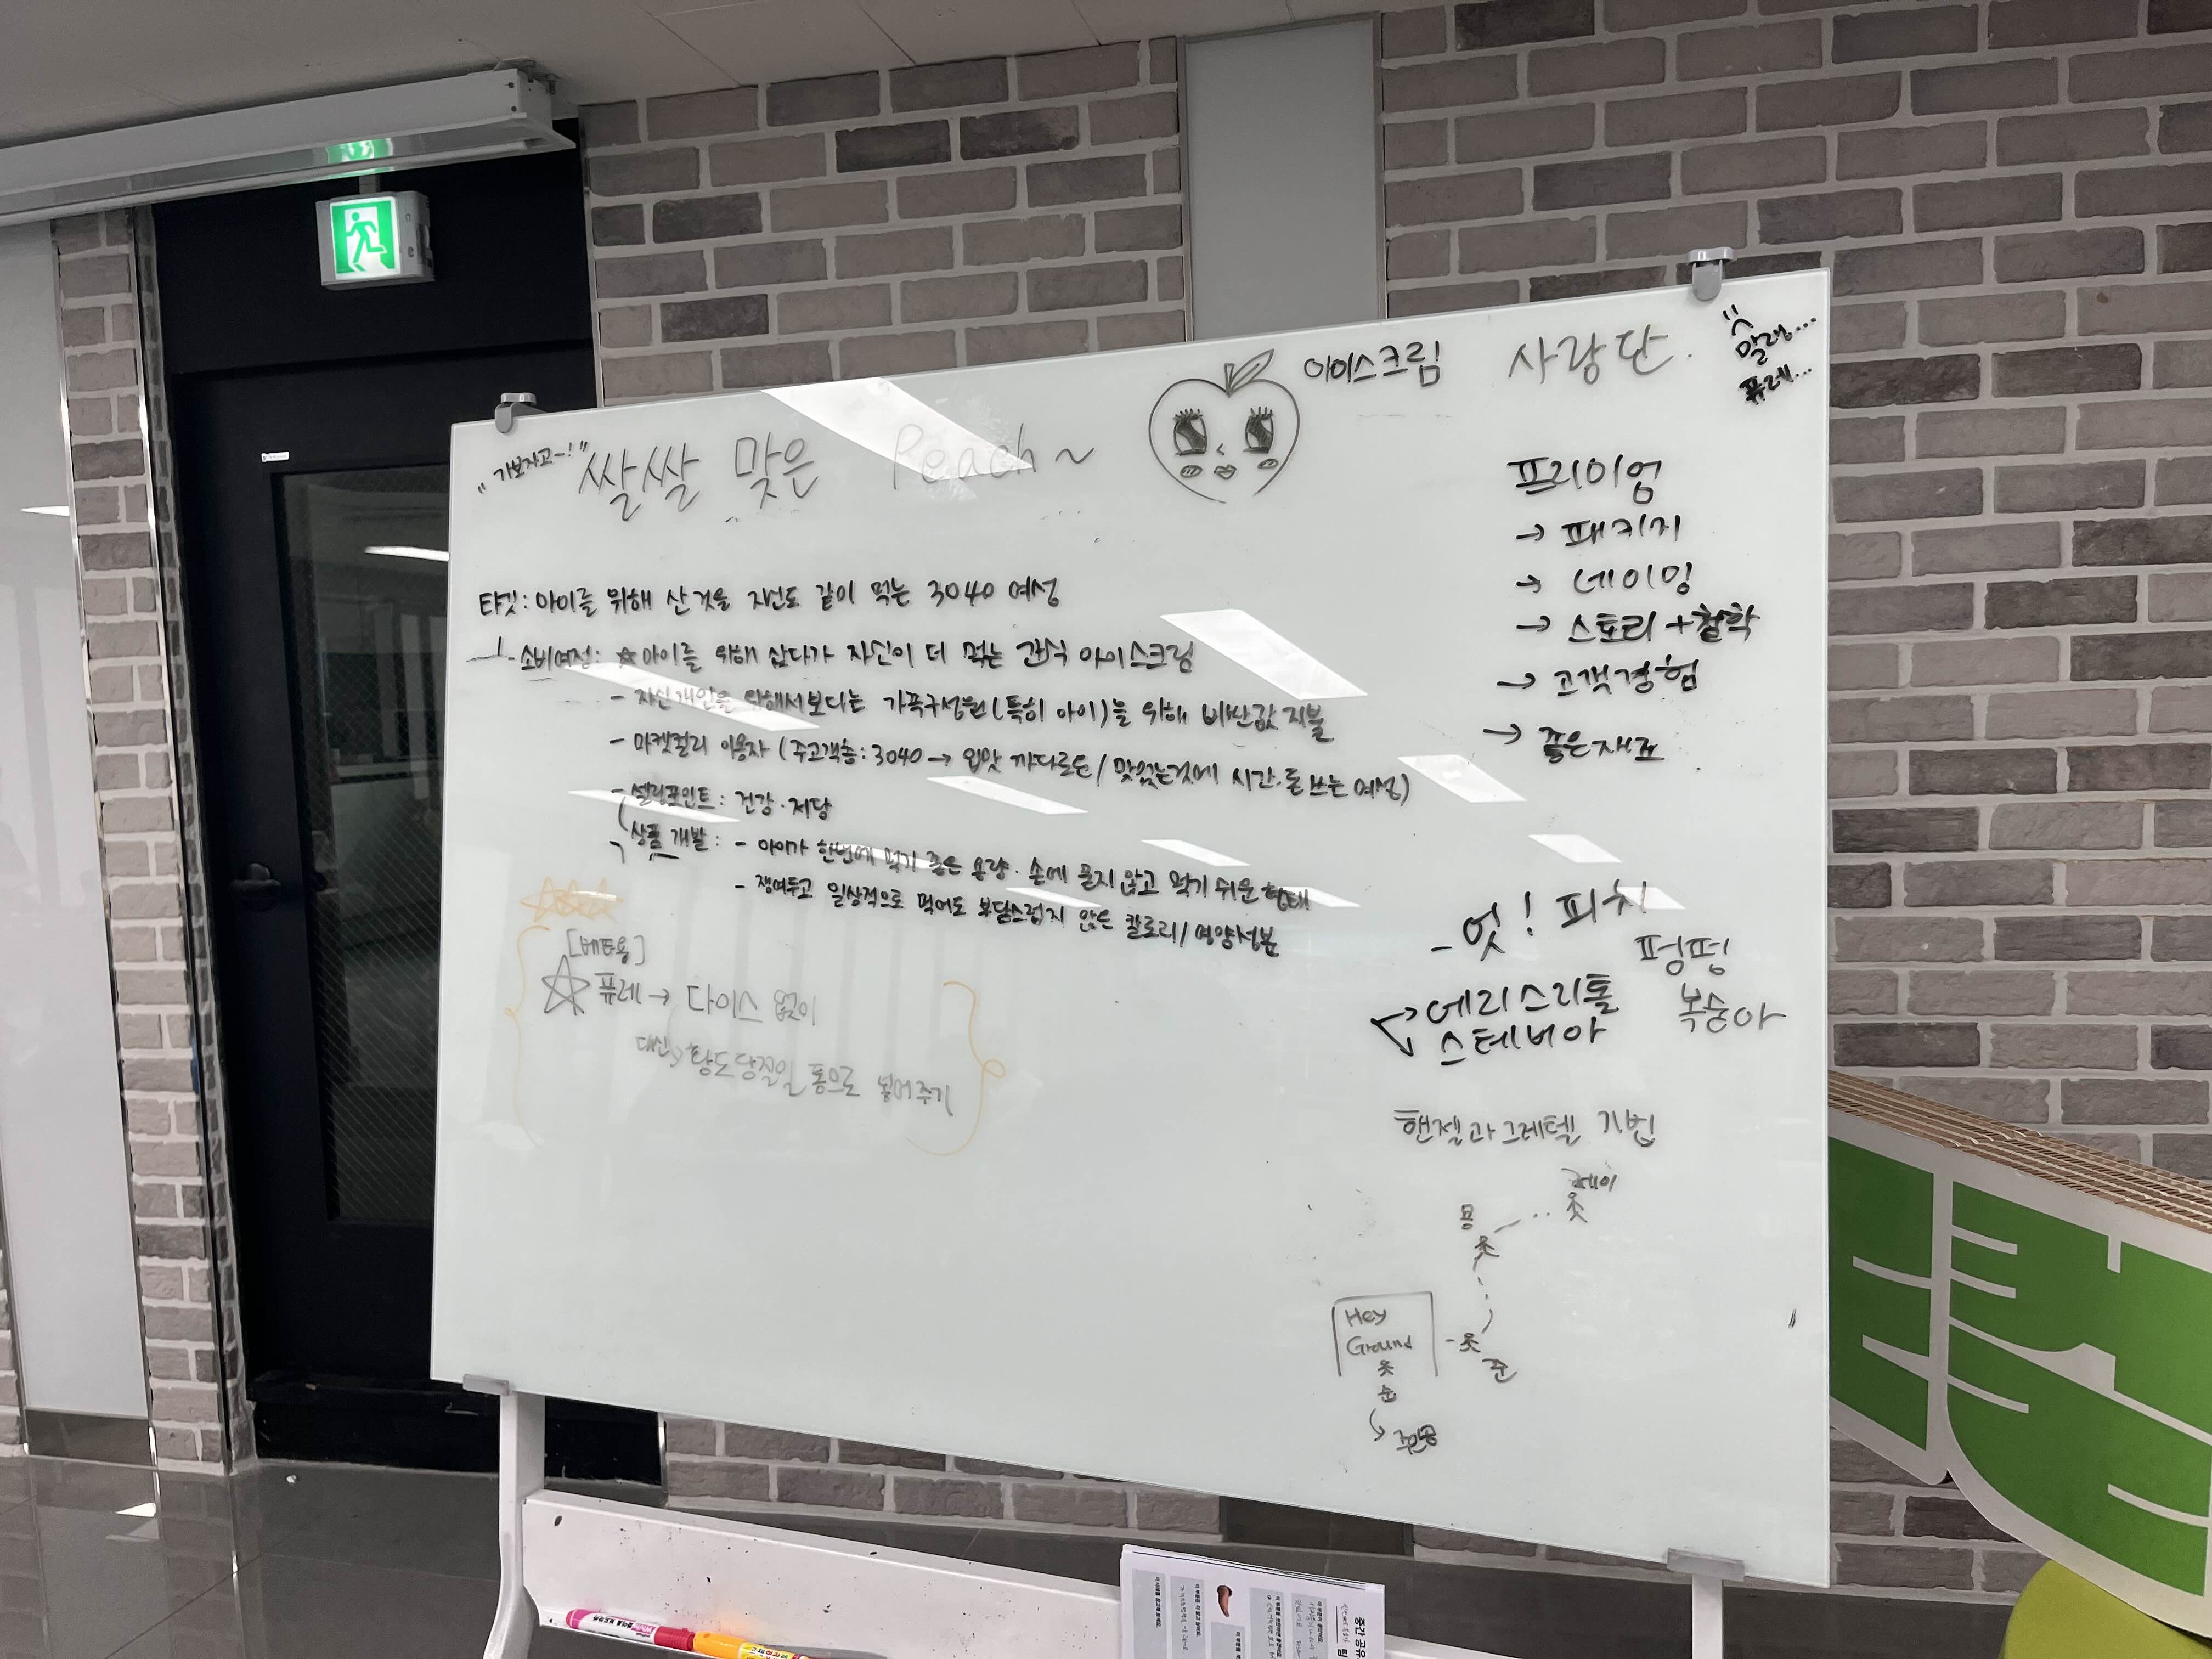 아이스크림 사랑단.
말랭...
퓨레...
"가보자고~!"
쌀쌀 맞은 Peach~
타깃: 아이를 위해 산 것을 자신도 같이 먹는 3040 여성
소비여정: ☆아이를 위해 샀다가 자신이 더 먹는 간식 아이스크림
- 자신 개인을 위해서보다는 가족구성원(특히 아이)를 위해 비싼값 지불
- 마켓컬리 이용자 (주고객층: 3040 → 입맛 까다로운/맛있는것에 시간·돈 쓰는 여성)
- 셀링포인트: 건강·저당
상품 개발: - 아이가 한번에 먹기 좋은 용량·손에 묻지 않고 먹기 쉬운 형태
- 쟁여두고 일상적으로 먹어도 부담스럽지 않은 칼로리/영양성분
☆☆☆
[베타용]
☆ 퓨레 → 다이스 없이
대신 → 황도당절일 통으로 넣어주기
프리미엄
→ 패키지
→ 네이밍
→ 스토리+철학
→ 고객경험
→ 좋은재료
- 엇! 피치
펑펑
복숭아
에리스리톨
스테비아
핸젤과그레텔 기법
레이
몽
Hey
Ground
준
순